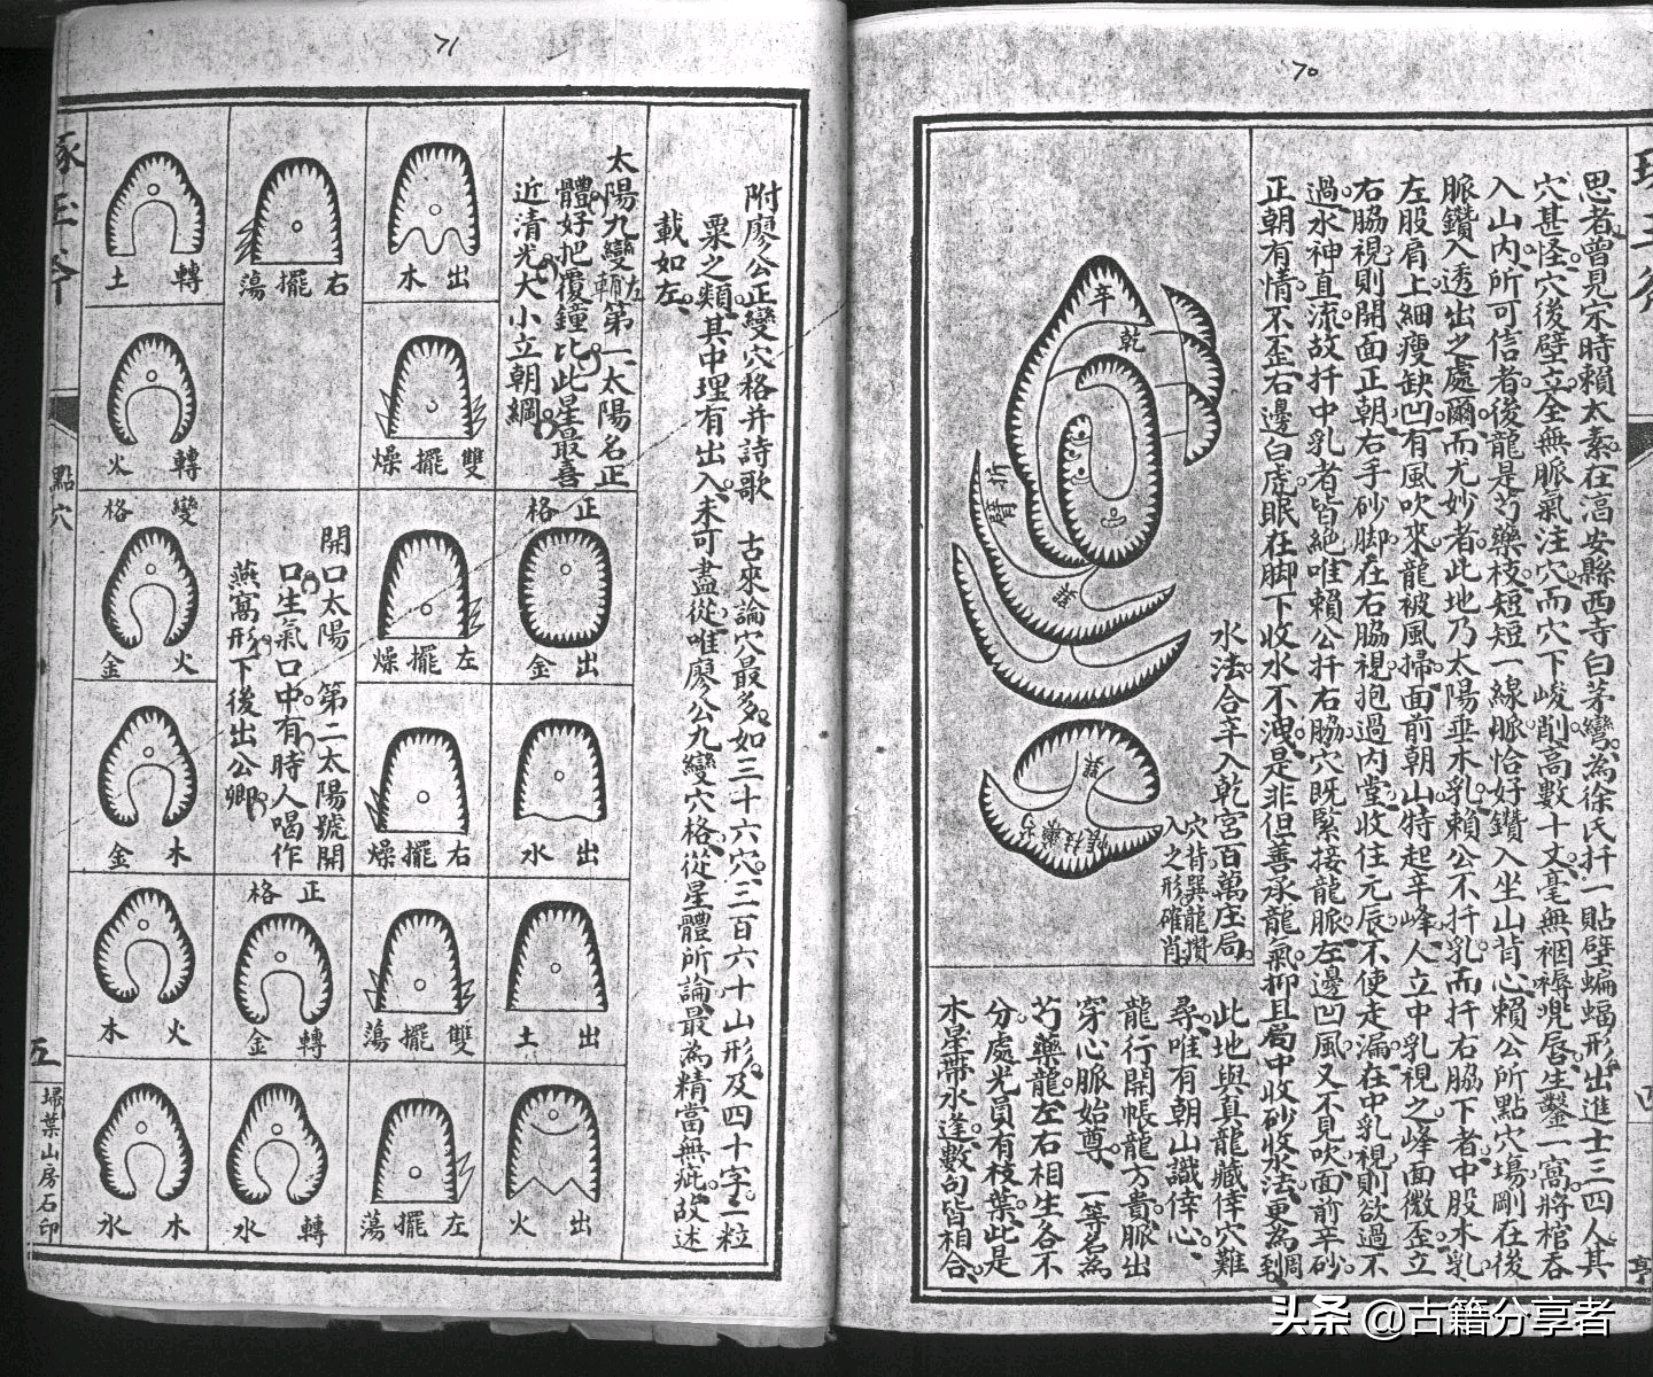 70
思者曾見宋時賴太素在高安縣西寺白茅灣為徐氏扦一貼壁蝙蝠形出進士三四人其
穴甚怪穴後壁立全無脈氣注穴而穴下峻削高數十丈毫無裀褥兠唇生鑿一窩將棺吞
入山內所可信者後龍是芍藥枝短短一線脈恰好鑽入坐山背心賴公所點穴塲剛在後
脈鑽入透出之處爾而尤妙者此地乃太陽垂木乳賴公不扦乳而扦右脇下者中股木乳
左股肩上細瘦缺凹有風吹來龍被風掃面前朝山特起辛峰人立中乳視之峰面微歪立
右脇視則開面正朝右手砂脚在右脇視抱過內堂收住元辰不使走漏在中乳視則欲過不
過水神直流故扦中乳者皆絕唯賴公扦右脇穴既緊接龍脈左邊凹風又不見吹面前辛砂
正朝有情不歪右邊白虎眠在脚下收水不洩是非但善承龍氣抑且局中收砂收水法更為周到
辛
乾
水法合辛入乾宮百萬庄局
穴背巽龍攢
入之形確肖
此地與真龍藏倖穴難
尋唯有朝山識倖心
龍行開帳龍方貴脈出
穿心脈始尊一等名為
芍藥龍左右相生各不
分處尤員有枝葉此是
木星帶水逢數句皆相合
71
附廖公正變穴格并詩歌 古來論穴最多如三十六穴三百六十山形及四十字一粒
粟之類其中理有出入未可盡從唯廖公九變穴格從星體所論最為精當無疵故述
載如左
太陽九變 第一太陽名正
體好把覆鐘比此星最喜
近清光大小立朝綱
正格
出金
出水
出土
出火
出木
雙擺燥
左擺燥
右擺燥
雙擺蕩
左擺蕩
右擺蕩
開口太陽 第二太陽號開
口生氣口中有時人喝作
燕窩形下後出公卿
正格
轉金
轉水
轉土
轉火
變格
火金
木金
火木
木水
點穴
五
埽葉山房石印
头条 @古籍分享者